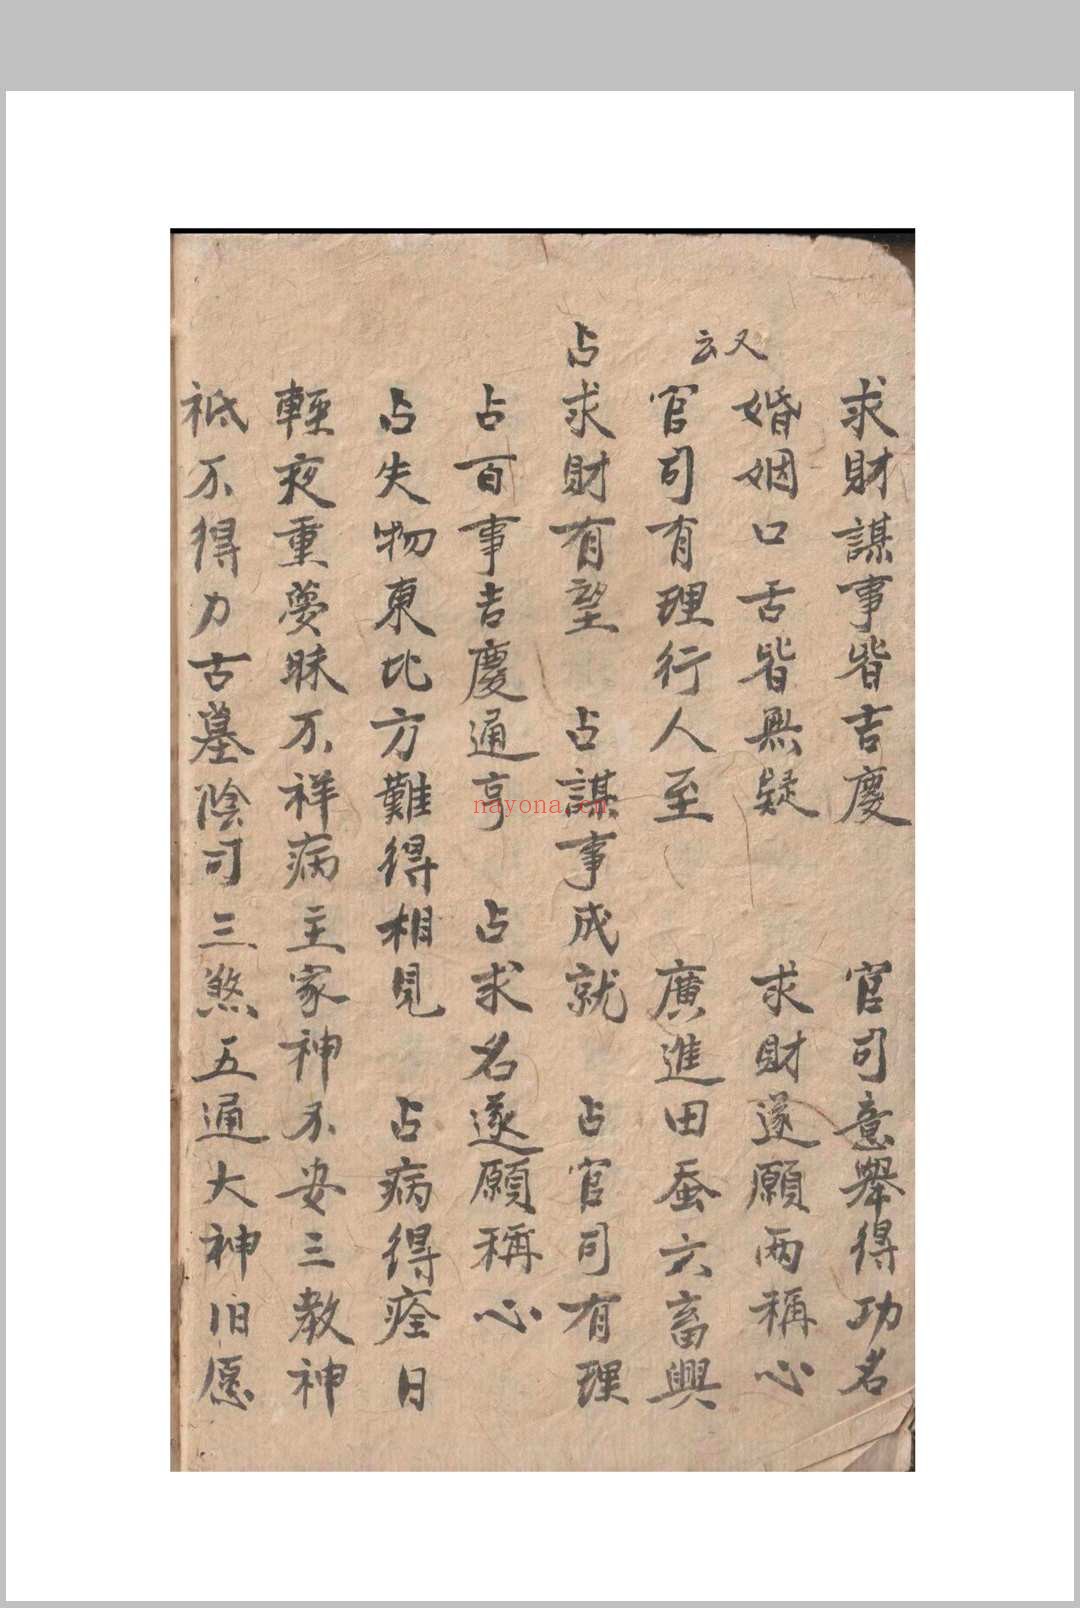 求財謀事皆吉慶　官司意舉得功名
婚姻口舌皆無疑　求財遂願両稱心
又云
官司有理行人至　廣進田蚕六畜興
占求財有望　占謀事成就　占官司有理
占百事吉慶通亨　占求名遂願稱心
占失物東比方難得相見　占病得痊日
輕夜重夢昧不祥病主家神不安三教神
祗不得力古墓陰司三煞五通大神旧愿
nayona.cn